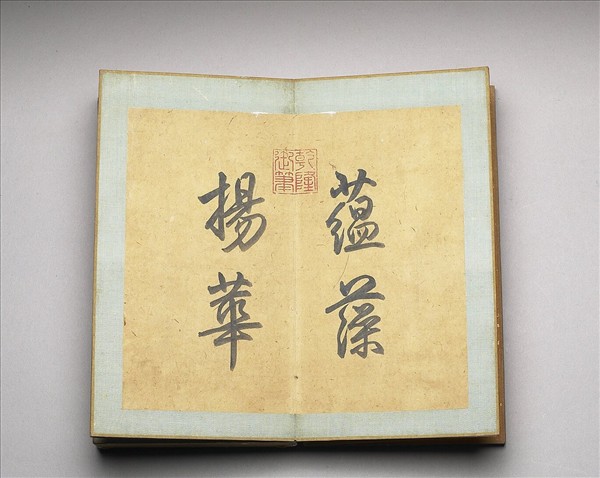 蘊藻
揚華
乾隆
御筆